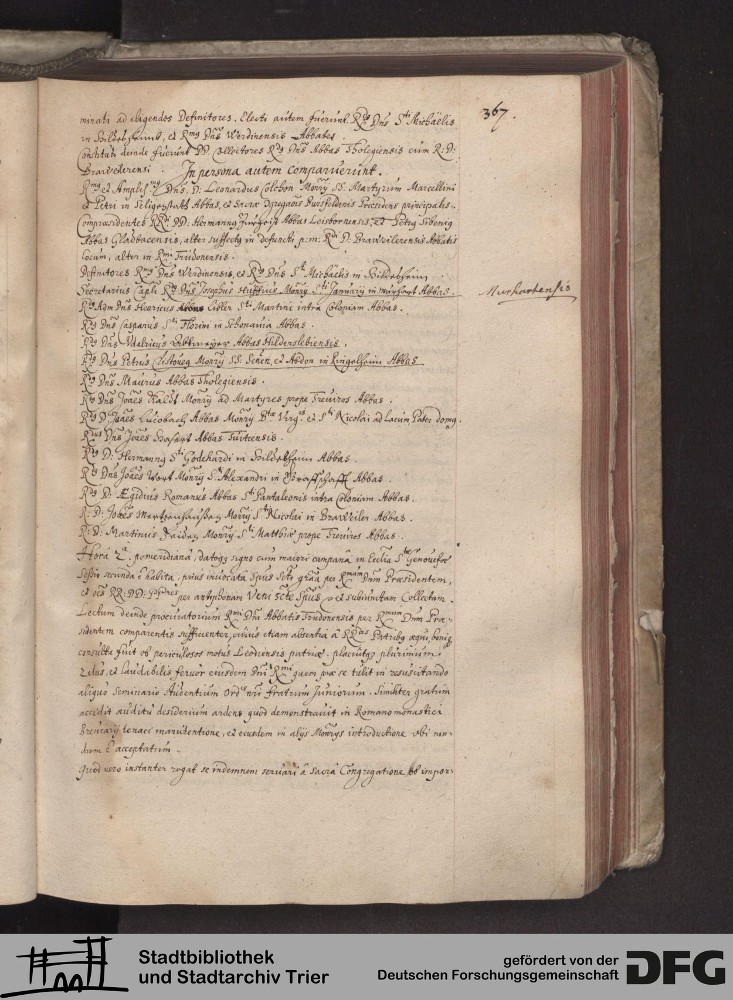 367.
minati ad eligendos Definitores. Electi autem fuerunt Rdg Dns Sti Michaelis
in Hildesheimb, et Rmg Dns Werdinensis Abbates.
Constituti deinde fuerunt DD. Collectores Rdg Dns Abbas Tholegiensis cum R: D:
Brawilerensi. In persona autem comparuerunt.
Rmg et Ampliss. Dns. D: Leonardus Colchon Monrÿ SS. Martyrum Marcellini
et Petri in Seligenstatt Abbas, et Sacræ Bursfeldensis Præsidens principalis.
Compræsidentes RRdi DD: Hermanng Abbas Leisbornensis, et Petrg Sibenig
Abbas Gladbacensis, alter suffectg in defuncti p: m: Rdi D: Brawilerensis Abbatis
locum, alter in Rmi Trudonensis.
Definitores Rmg Dns Werdinensis, et Rdg Dns Sti Michaelis in Hildesheim.
Secretarius Capli Rdg Dns Josephus Huffius Monrÿ Sti Januarÿ in Abbas.
Murhartensis
Rdg Adm Dns Henricus Sti Martini intra Coloniam Abbas.
Rdg Dns Casparus Sti Florini in Schonauia Abbas.
Rdg Dns Vdalricus Abbas Hilderslebiensis.
Rdg Dns Petrus Monrÿ SS. et Abdon in Ringelheim Abbas
Rdg Dns Maurus Abbas Tholegiensis.
Rdg Dns Joaes Monrÿ ad Martyres prope Treuiros Abbas.
Rdg D: Joaes Lucobach Abbas Monrÿ Btæ Virgs et Sti Nicolai ad Lacum Pater domg.
Rdus Dns Joaes Abbas Tuitcensis.
Rdg D: Hermanng Sti Godehardi in Hildesheim Abbas.
Rdg Dns Joaes Wort Monrÿ Sti Alexandri in Graffschafft Abbas.
Rdg D: Ægidius Romanus Abbas Sti Pantaleonis intra Coloniam Abbas.
R: D: Joaes Monrÿ Sti Nicolai in Brawiler Abbas.
R: D: Martinus Monrÿ Sti Matthiæ prope Treuiros Abbas.
Horâ 2â. pomeridianâ, datoqz signo cum maiori campanâ in Ecclia Stæ Genouefæ
Sessio secunda e habita, prius inuocata Spus Scti gratia per Rmum Dnm Præsidentem,
et oes RR: DD: Patres per antyphonam Veni Scte Spus, et subiunctam Collectam.
Lectum deinde procuratorium Rmi Dni Abbatis Trudonensis per Rmum Dnm Præ-
sidentem comparentis sufficienter, cuius etiam absentia à RRdis Patribg æqui, benig
consulta fuit ob periculosos motus Leodiensis patriæ. placuitqz plurimum
Zelus, et laudabilis feruor eiusdem Dni Rmi quem præ se tulit in resuscitando
aliquo Seminario studentium Ords nri fratrum Juniorum. Similiter gratum
accidit auditu desiderium ardens quod demonstrauit in Romano monastici
Breuiarÿ tenaci manutentione, et eiusdem in alÿs Monrÿs introductione vbi non-
dum e acceptatum.
Quod vero instanter rogat se indemnem seruari â sacrâ Congregatione ob impor-
Stadtbibliothek
und Stadtarchiv Trier
gefördert von der
Deutschen Forschungsgemeinschaft
DFG